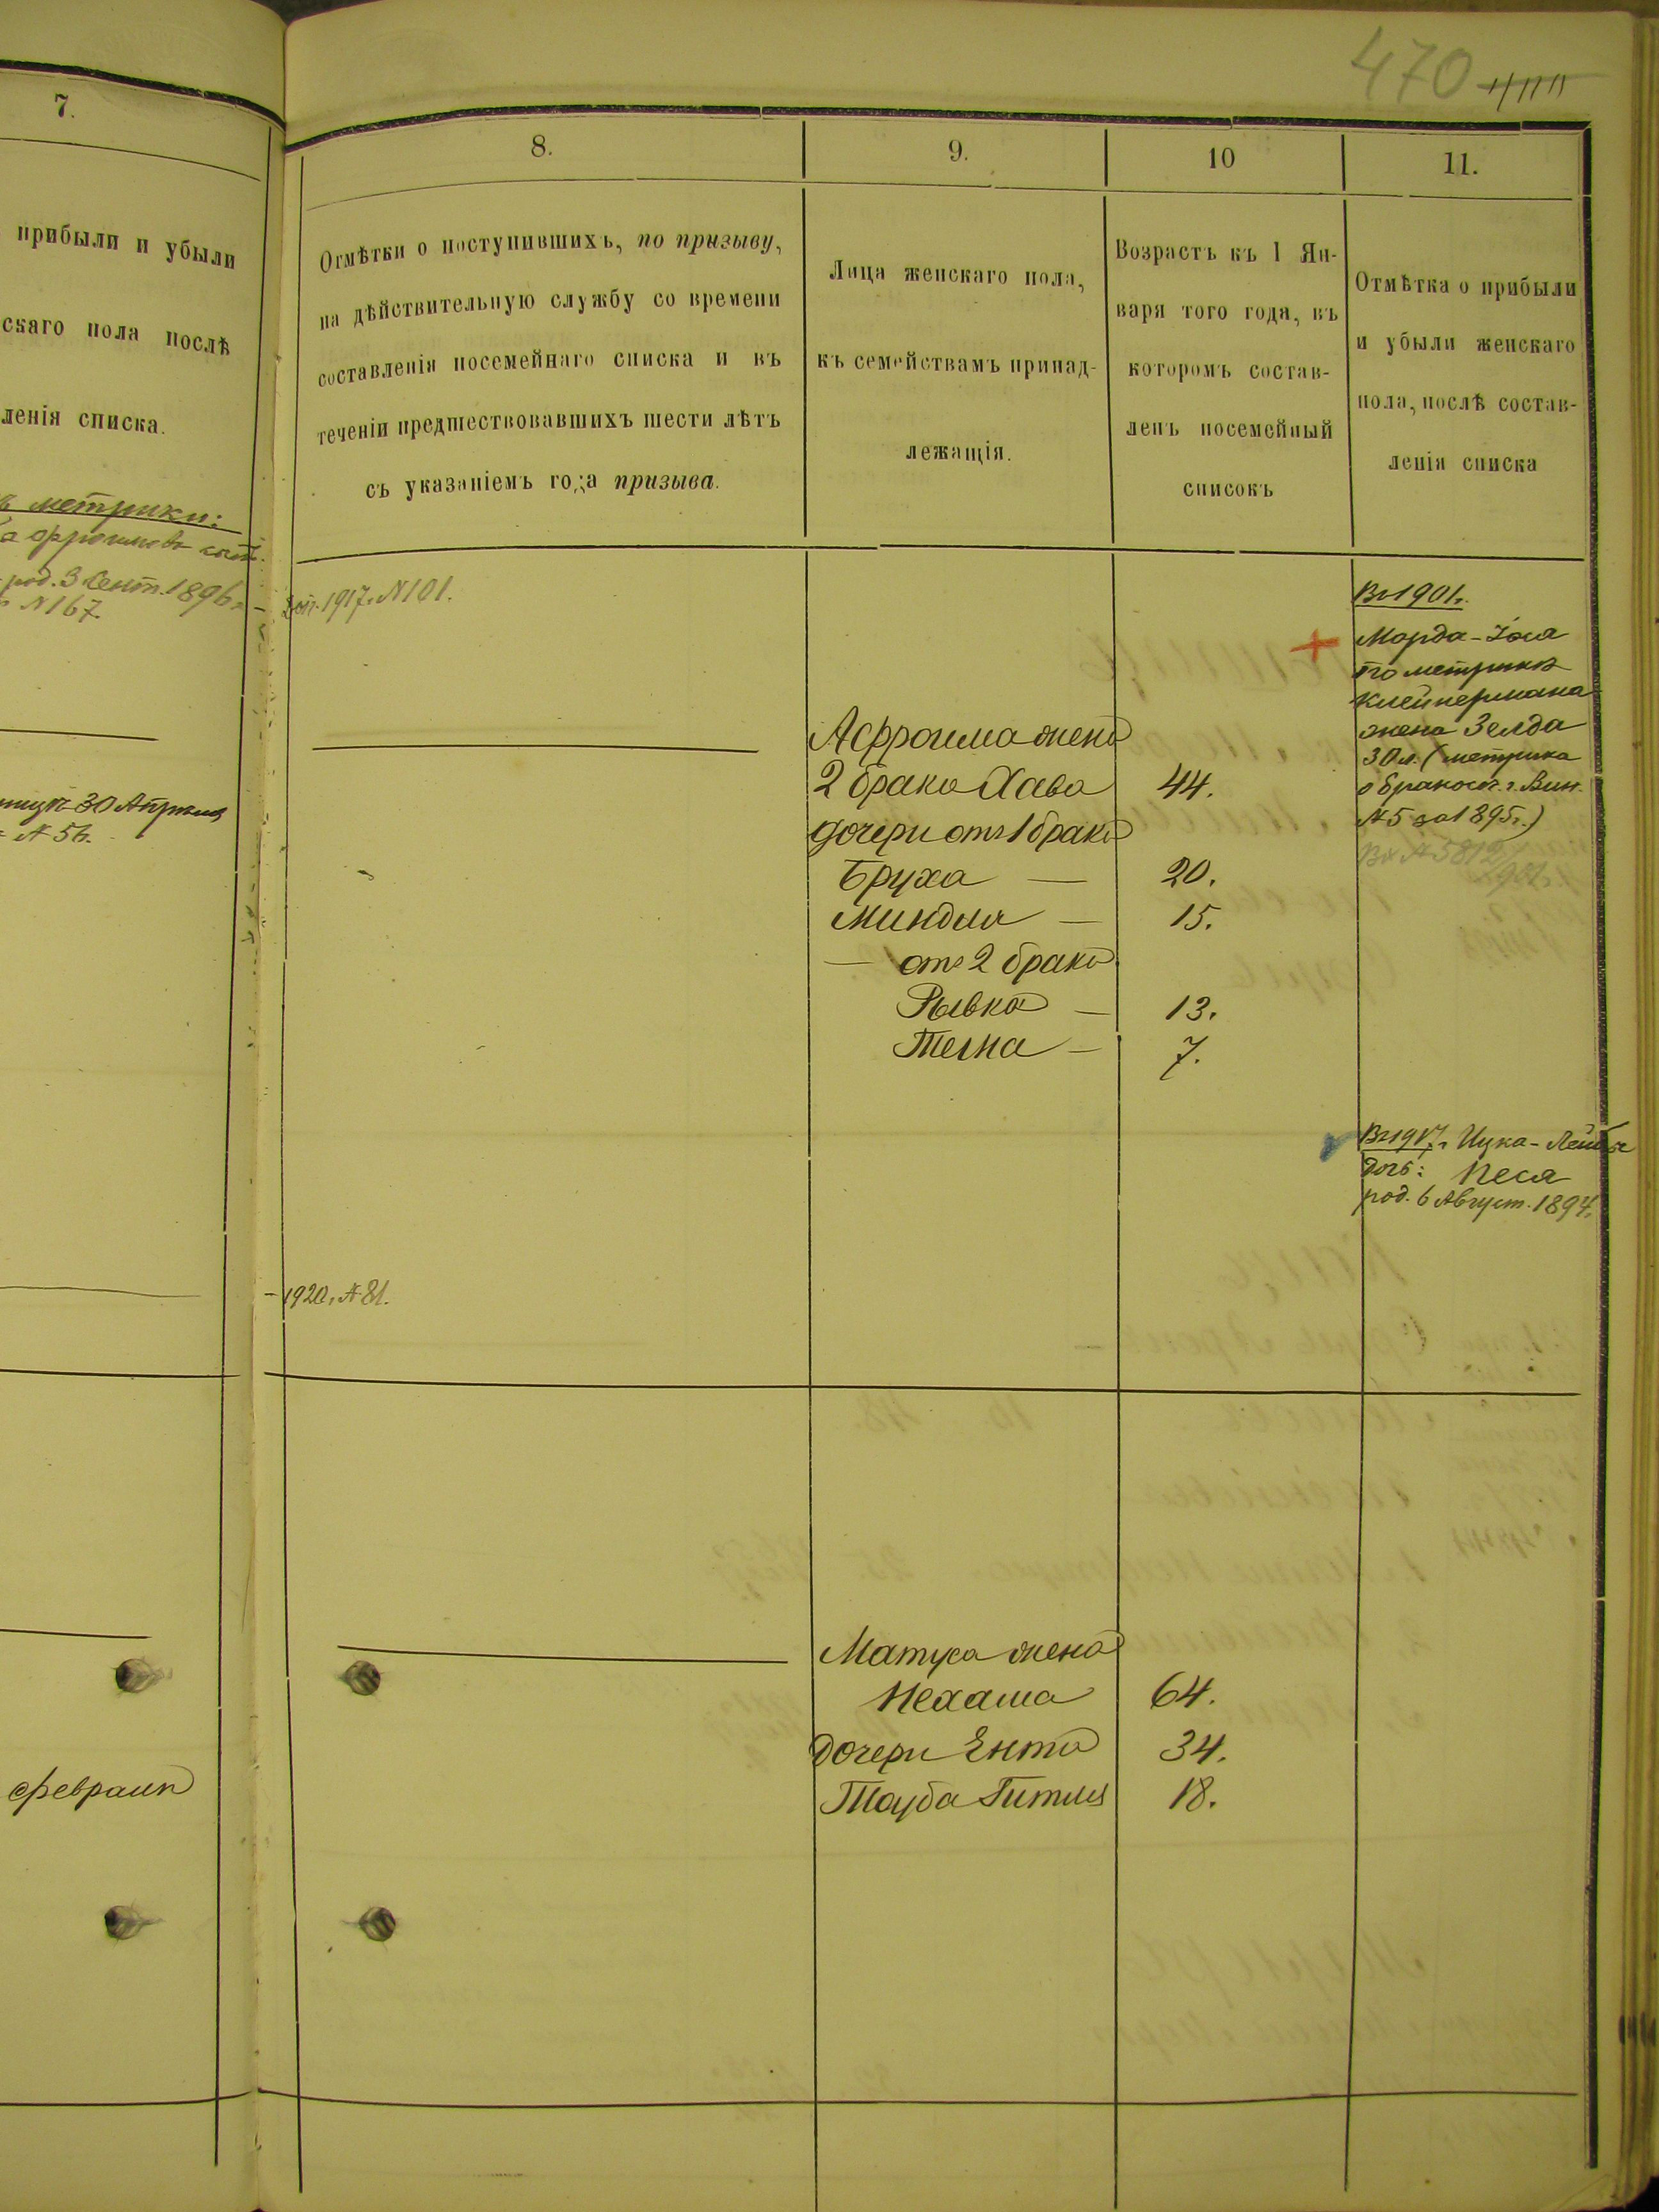 470
7.
прибыли и убыли
скаго пола послѣ
ленія списка.
метрики:
род. 3 Сент. 1896 г.
N 167.
30 Апрѣля
N 56.
февраля
8.
Отмѣтки о поступившихъ, по призыву,
на дѣйствительную службу со времени
составленія посемейнаго списка и въ
теченіи предшествовавшихъ шести лѣтъ
съ указаніемъ года призыва.
1917 г. N 101.
1920 г. N 81.
9.
Лица женскаго пола,
къ семействамъ принад-
лежащія.
Аффроима жена
2 брака Хава
дочери отъ 1 брака
Бруха —
Миндля —
— отъ 2 брака
Рывка —
Тегна —
Матуса жена
Нехама
дочери Ента
Тауба Гитля
10
Возрастъ къ 1 Ян-
варя того года, въ
которомъ состав-
ленъ посемейный
списокъ
44.
20.
15.
13.
7.
64.
34.
18.
11.
Отмѣтка о прибыли
и убыли женскаго
пола, послѣ состав-
ленія списка
Въ 1901 г.
Морда-
по метрикѣ
Клейнермана
жена Зелда
30 л. (метрика
о бракосч. г. Вин.
N 5 за 1895 г.)
Вх N 5812
Въ 1917 г. Ицка-Лейбы
дочь: Песя
род. 6 Август. 1894 г.